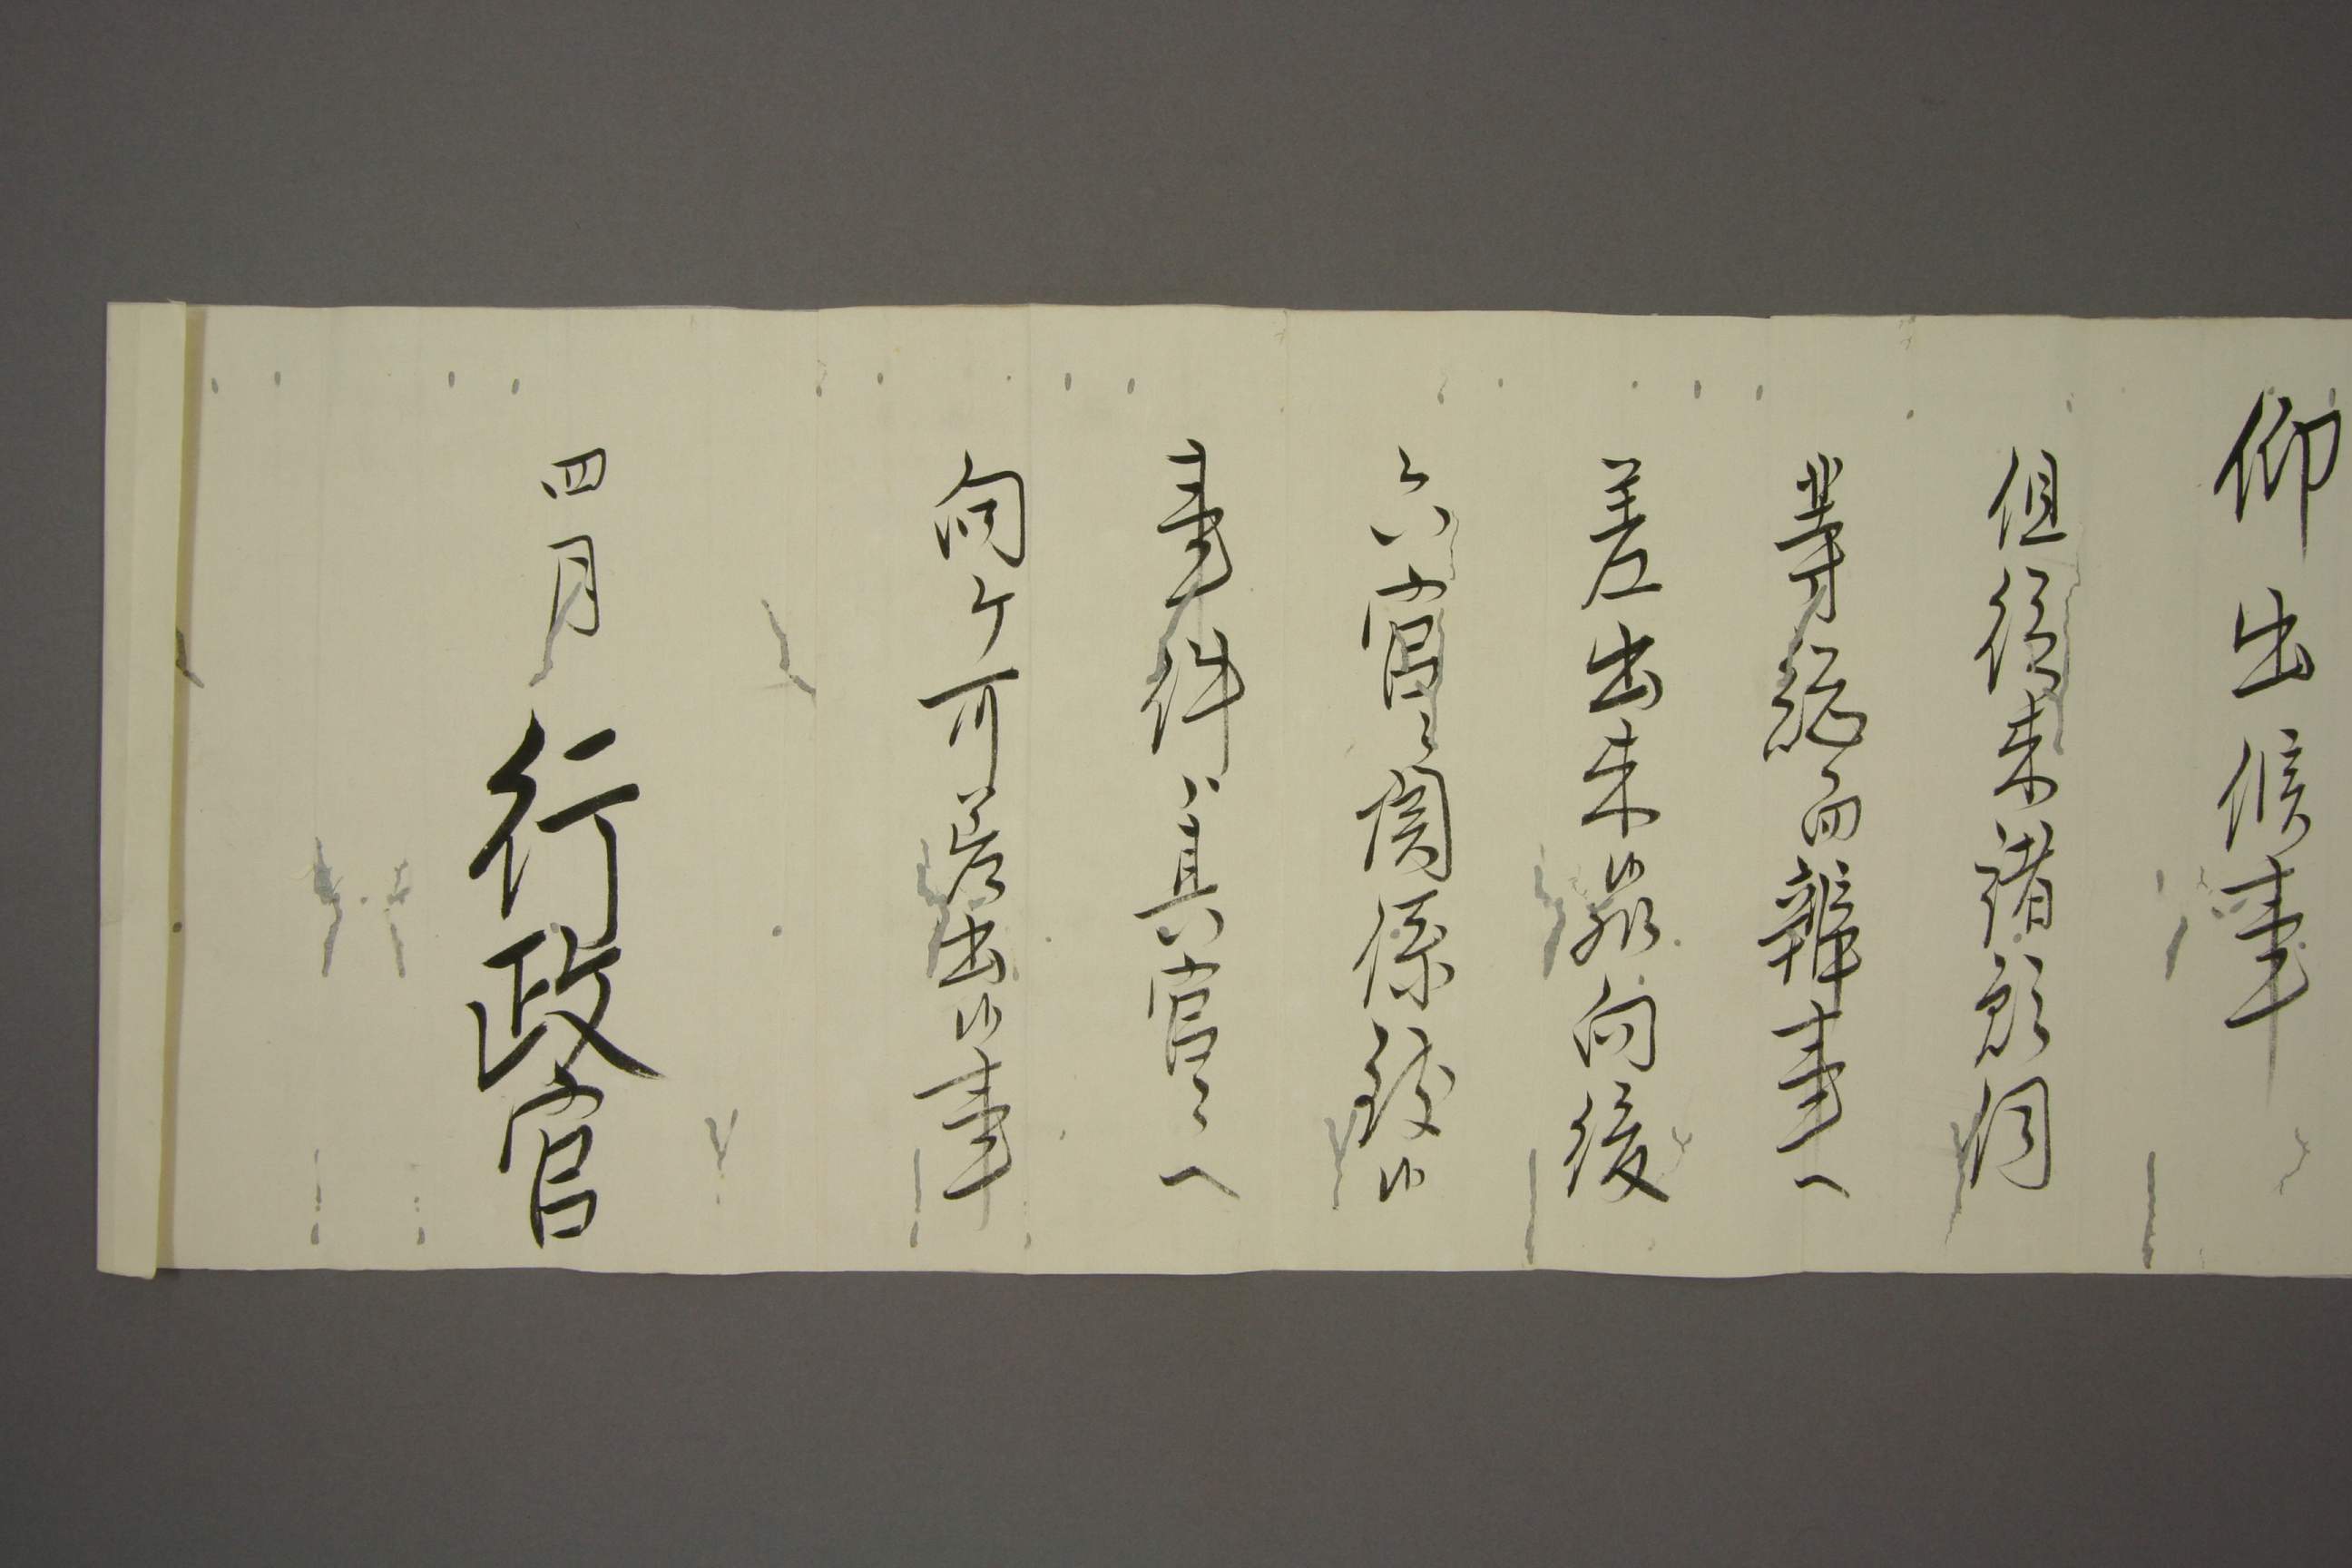 仰出候事
但従来諸願伺
等総而辨事へ
差出来候処向後
六官ニ関係致候
事件ハ其官ニへ
向ケ可差出候事
四月
行政官